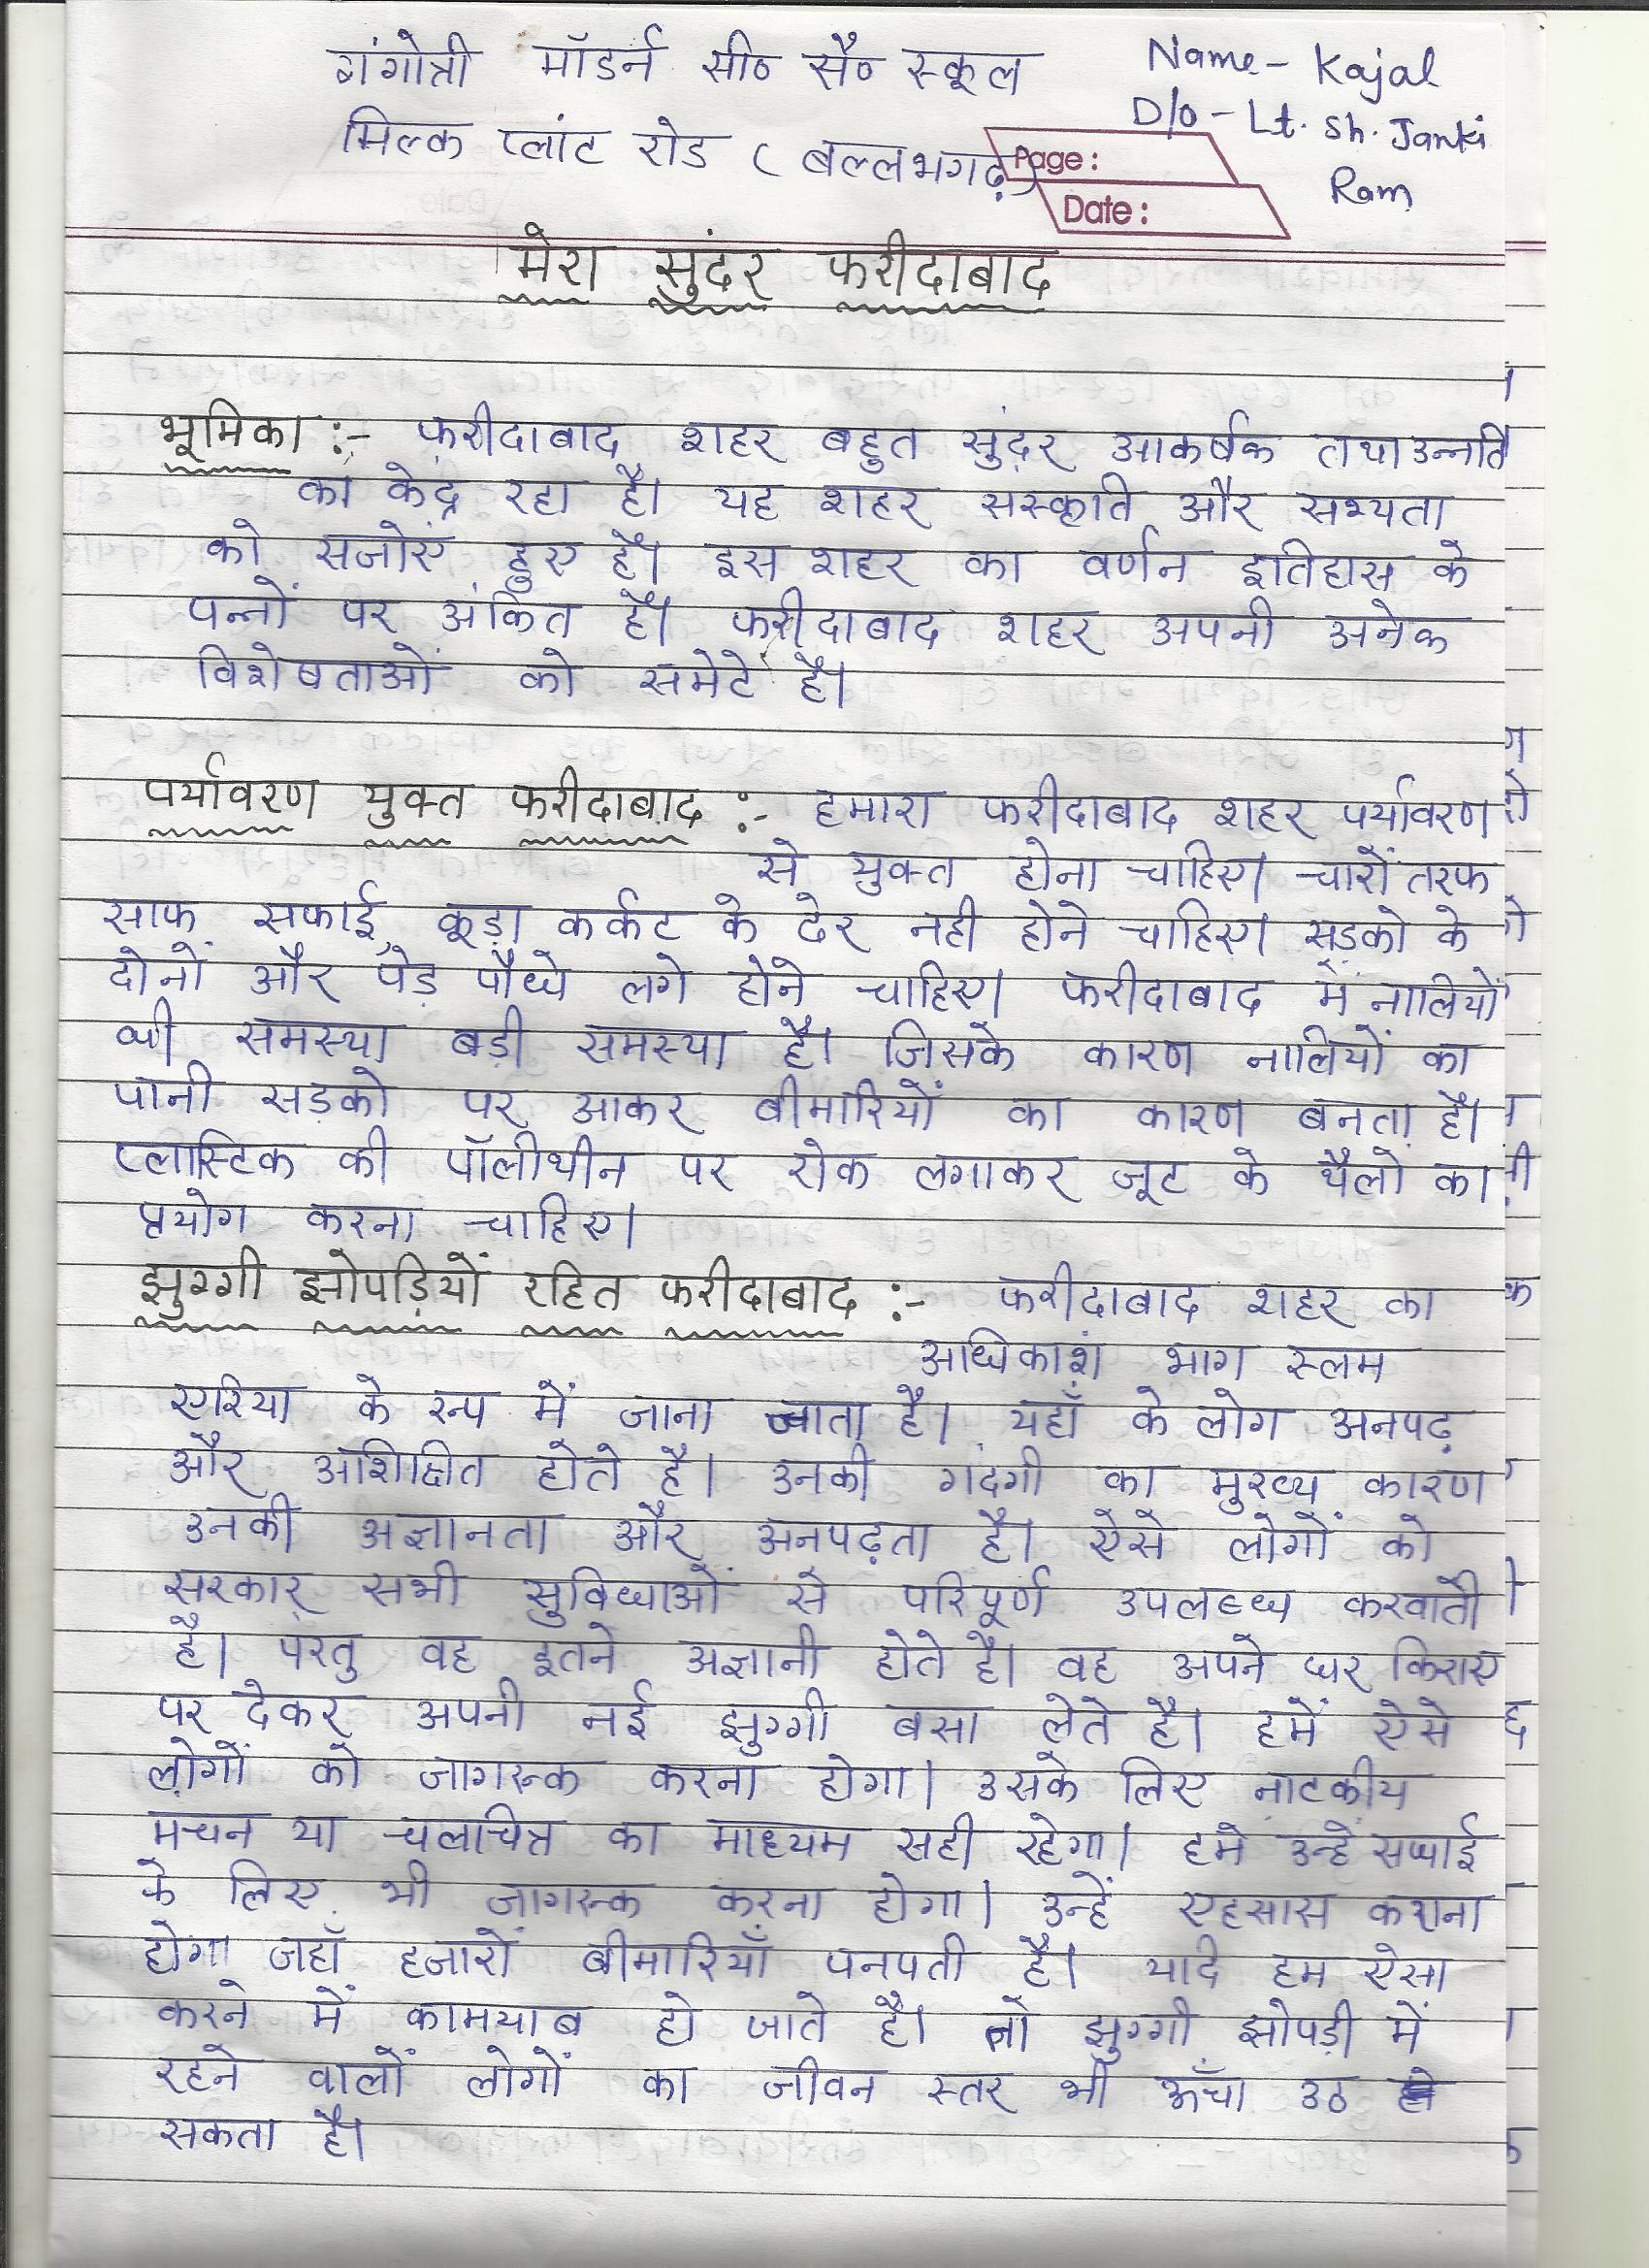 गंगोत्री मॉडर्न सी० सै० स्कूल
Name - Kajal
मिल्क प्लांट रोड (बल्लभगढ़)
D/o - Lt. Sh. Janki
Ram
Page:
Date:
मेरा सुंदर फरीदाबाद
भूमिका :- फरीदाबाद शहर बहुत सुंदर आकर्षक तथा उन्नति
का केंद्र रहा है। यह शहर संस्कृति और सभ्यता
को संजोएं हुए है। इस शहर का वर्णन इतिहास के
पन्नों पर अंकित है। फरीदाबाद शहर अपनी अनेक
विशेषताओं को समेटे है।
पर्यावरण युक्त फरीदाबाद :- हमारा फरीदाबाद शहर पर्यावरण
से युक्त होना चाहिए। चारों तरफ
साफ सफाई, कूड़ा कर्कट के ढेर नही होने चाहिए। सड़को के
दोनों और पेड़ पौधे लगे होने चाहिए। फरीदाबाद में नालियों
की समस्या बड़ी समस्या है। जिसके कारण नालियों का
पानी सड़को पर आकर बीमारियों का कारण बनता है।
प्लास्टिक की पॉलीथीन पर रोक लगाकर जूट के थैलो का
प्रयोग करना चाहिए।
झुग्गी झोपड़ियों रहित फरीदाबाद :- फरीदाबाद शहर का
अधिकांश भाग स्लम
एरिया के रूप में जाना जाता है। यहाँ के लोग अनपढ़
और अशिक्षित होते है। उनकी गंदगी का मुख्य कारण
उनकी अज्ञानता और अनपढ़ता है। ऐसे लोगों को
सरकार सभी सुविधाओं से परिपूर्ण उपलब्ध करवाती
है। परंतु वह इतने अज्ञानी होते है। वह अपने घर किराए
पर देकर अपनी नई झुग्गी बसा लेते है। हमें ऐसे
लोगों को जागरूक करना होगा। उसके लिए नाटकीय
मंचन या चलचित्र का माध्यम सही रहेगा। हमे उन्हें सफाई
के लिए भी जागरूक करना होगा। उन्हें एहसास कराना
होगा जहाँ हजारों बीमारियाँ पनपती है। यदि हम ऐसा
करने में कामयाब हो जाते है। तो झुग्गी झोपड़ी में
रहने वालों लोगों का जीवन स्तर भी ऊँचा उठ
सकता है।